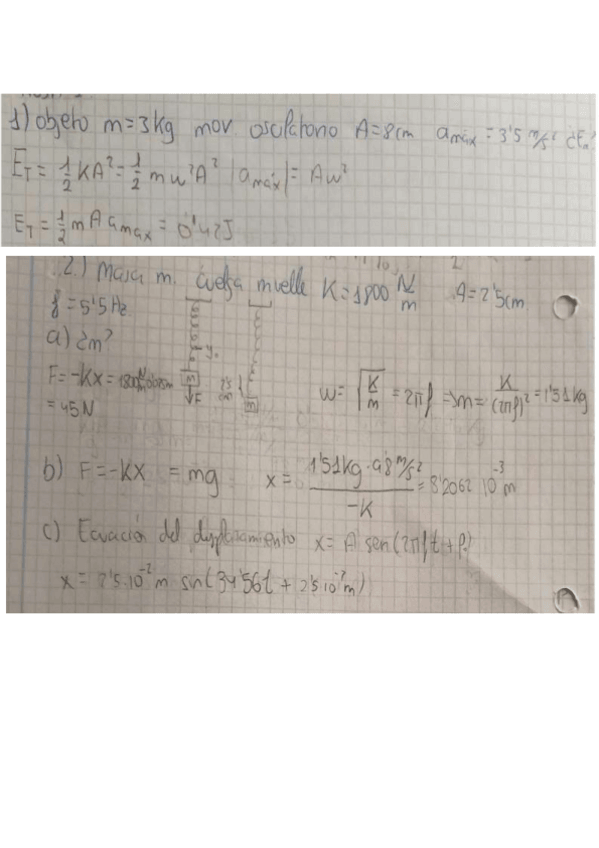 1) objeto m=3Kg mov oscilatorio A=8cm amáx = 3'5 m/s² ¿E
E_T = 1/2 KA² = 1/2 m w² A² |amáx| = Aw²
E_T = 1/2 m A amax = 0'42J
2.) Masa m. cuelga muelle K=1800 N/m A=2'5cm
f = 5'5 Hz
a) ¿m?
F = -Kx =
= 45N
w = √(K/m) = 2πf ⇒ m = K/(2πf)² = 1'51kg
b) F = -Kx = mg x = (1'51kg · 9'8 m/s²)/(-K) = 8'2062 10⁻³ m
c) Ecuación del desplazamiento x = A sen(2πft +
x = 2'5·10⁻² m sin(34'56t + 2'5·10⁻² m)